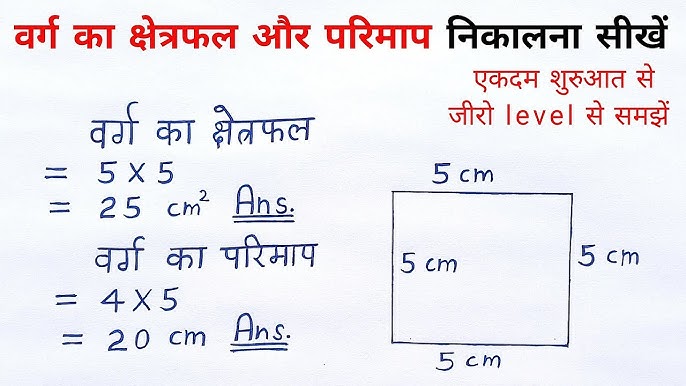 वर्ग का क्षेत्रफल और परिमाप निकालना सीखें
एकदम शुरुआत से
जीरो level से समझें
वर्ग का क्षेत्रफल
= 5 X 5
= 25 cm² Ans.
वर्ग का परिमाप
= 4 X 5
= 20 cm Ans.
5 cm
5 cm
5 cm
5 cm